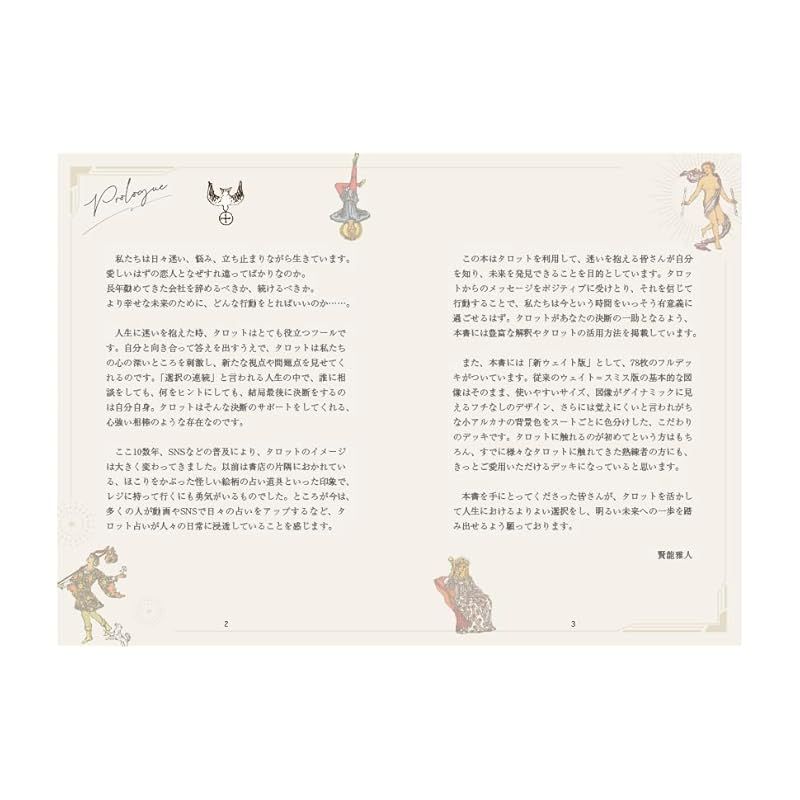 Prologue
私たちは日々迷い、悩み、立ち止まりながら生きています。
愛しいはずの恋人となぜすれ違ってばかりなのか。
長年勤めてきた会社を辞めるべきか、続けるべきか。
より幸せな未来のために、どんな行動をとればいいのか……。
人生に迷いを抱えた時、タロットはとても役立つツールで
す。自分と向き合って答えを出すうえで、タロットは私たち
の心の深いところを刺激し、新たな視点や問題点を見せてく
れるのです。「選択の連続」と言われる人生の中で、誰に相
談をしても、何をヒントにしても、結局最後に決断をするの
は自分自身。タロットはそんな決断のサポートをしてくれる、
心強い相棒のような存在なのです。
ここ10数年、SNSなどの普及により、タロットのイメージ
は大きく変わってきました。以前は書店の片隅におかれてい
る、ほこりをかぶった怪しい絵柄の占い道具といった印象で、
レジに持って行くにも勇気がいるものでした。ところが今は、
多くの人が動画やSNSで日々の占いをアップするなど、タ
ロット占いが人々の日常に浸透していることを感じます。
2
この本はタロットを利用して、迷いを抱える皆さんが自分
を知り、未来を発見できることを目的としています。タロッ
トからのメッセージをポジティブに受けとり、それを信じて
行動することで、私たちは今という時間をいっそう有意義に
過ごせるはず。タロットがあなたの決断の一助となるよう、
本書には豊富な解釈やタロットの活用方法を掲載しています。
また、本書には「新ウェイト版」として、78枚のフルデッ
キがついています。従来のウェイト＝スミス版の基本的な図
像はそのまま、使いやすいサイズ、図像がダイナミックに見
えるフチなしのデザイン、さらには覚えにくいと言われがち
な小アルカナの背景色をスートごとに色分けした、こだわり
のデッキです。タロットに触れるのが初めてという方はもち
ろん、すでに様々なタロットに触れてきた熟練者の方にも、
きっとご愛用いただけるデッキになっていると思います。
本書を手にとってくださった皆さんが、タロットを活かし
て人生におけるよりよい選択をし、明るい未来への一歩を踏
み出せるよう願っております。
賢龍雅人
3